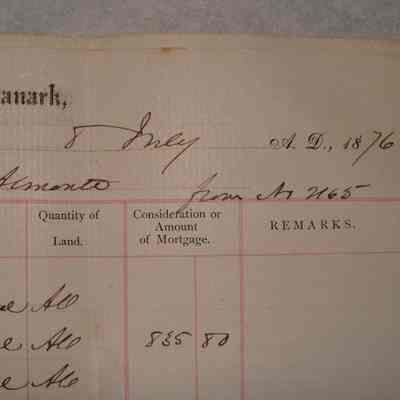 anark,
8 July A. D., 1876
Almonte from No 2165
Quantity of Land.
Consideration or Amount of Mortgage.
REMARKS.
All
All 835 80
All